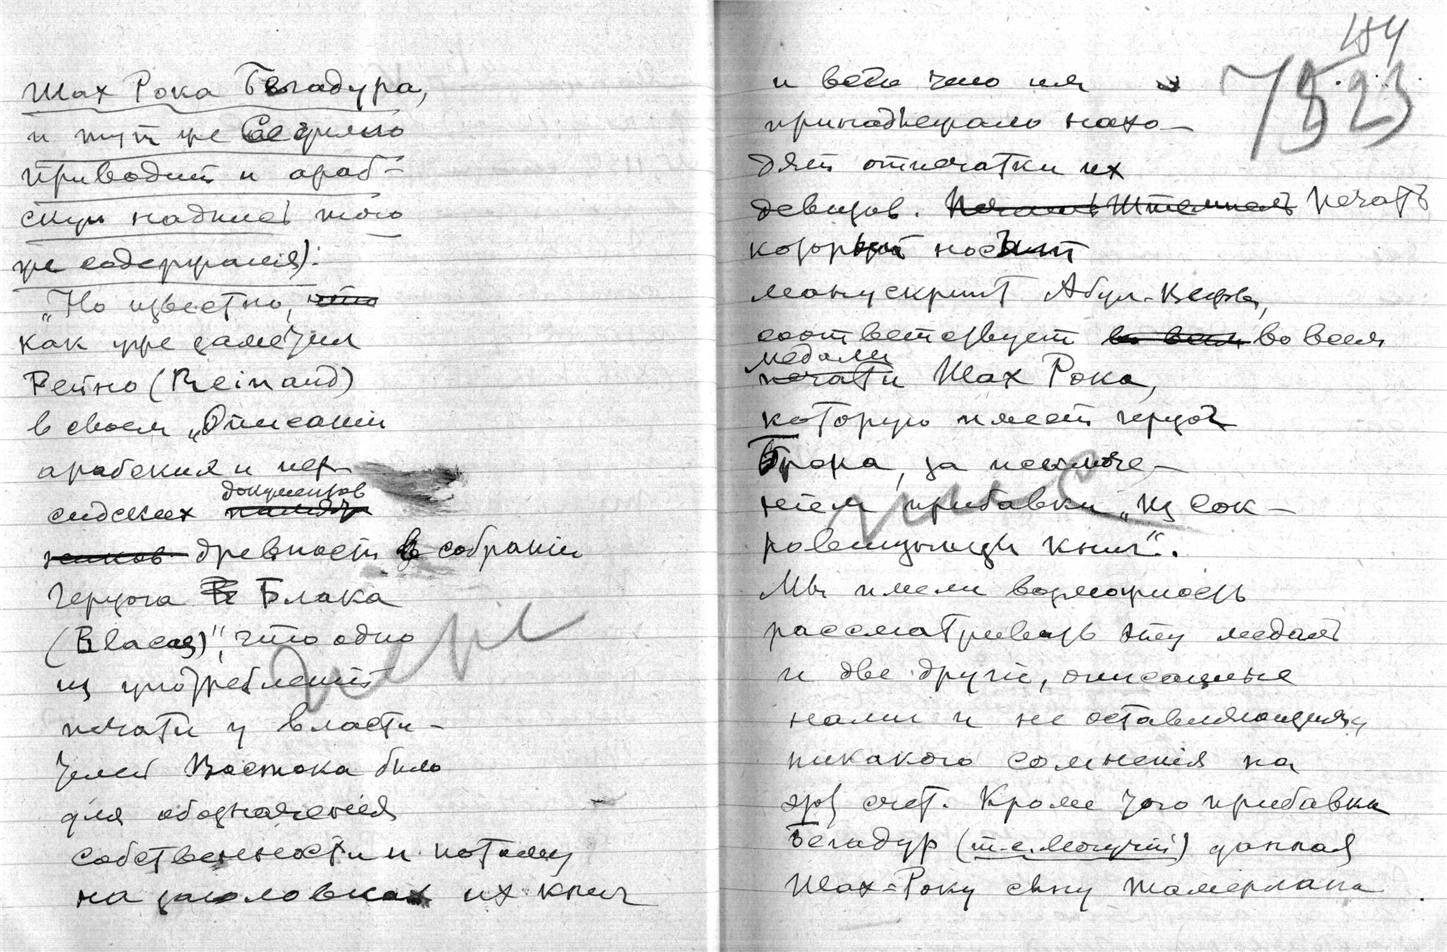 Шах Рока Бегадура,
и тут же Седильо
приводит и араб-
скую надпись того
же содержания):
„Но известно, что
как уже заметил
Рейно (Reinaud)
в своем „Описании
арабских и пер-
сидских документов
древности в собрании
герцога Блака
(Blacas)", что одно
из употреблений
печати у власти-
телей Востока было
для обозначения
собственности и потому
на заголовках их книг
184
7523
и всего что им
принадлежало нахо-
дят отпечатки их
девизов. Печать Штемпель Печать
который носит
манускрипт Абул-Вефы,
соответствует во всем во всем
медали
печати Шах Рока,
которую имеет герцог
Брока, за исключе-
нием прибавки „из сок-
ровищницы книг".
Мы имели возможность
рассматривать эту медаль
и две другие, описанные
нами и не оставляющия
никакого сомнения на
этот счет. Кроме того прибавка
Бегадур (т.е. могучий) данная
Шах-Року сыну Тамерлана